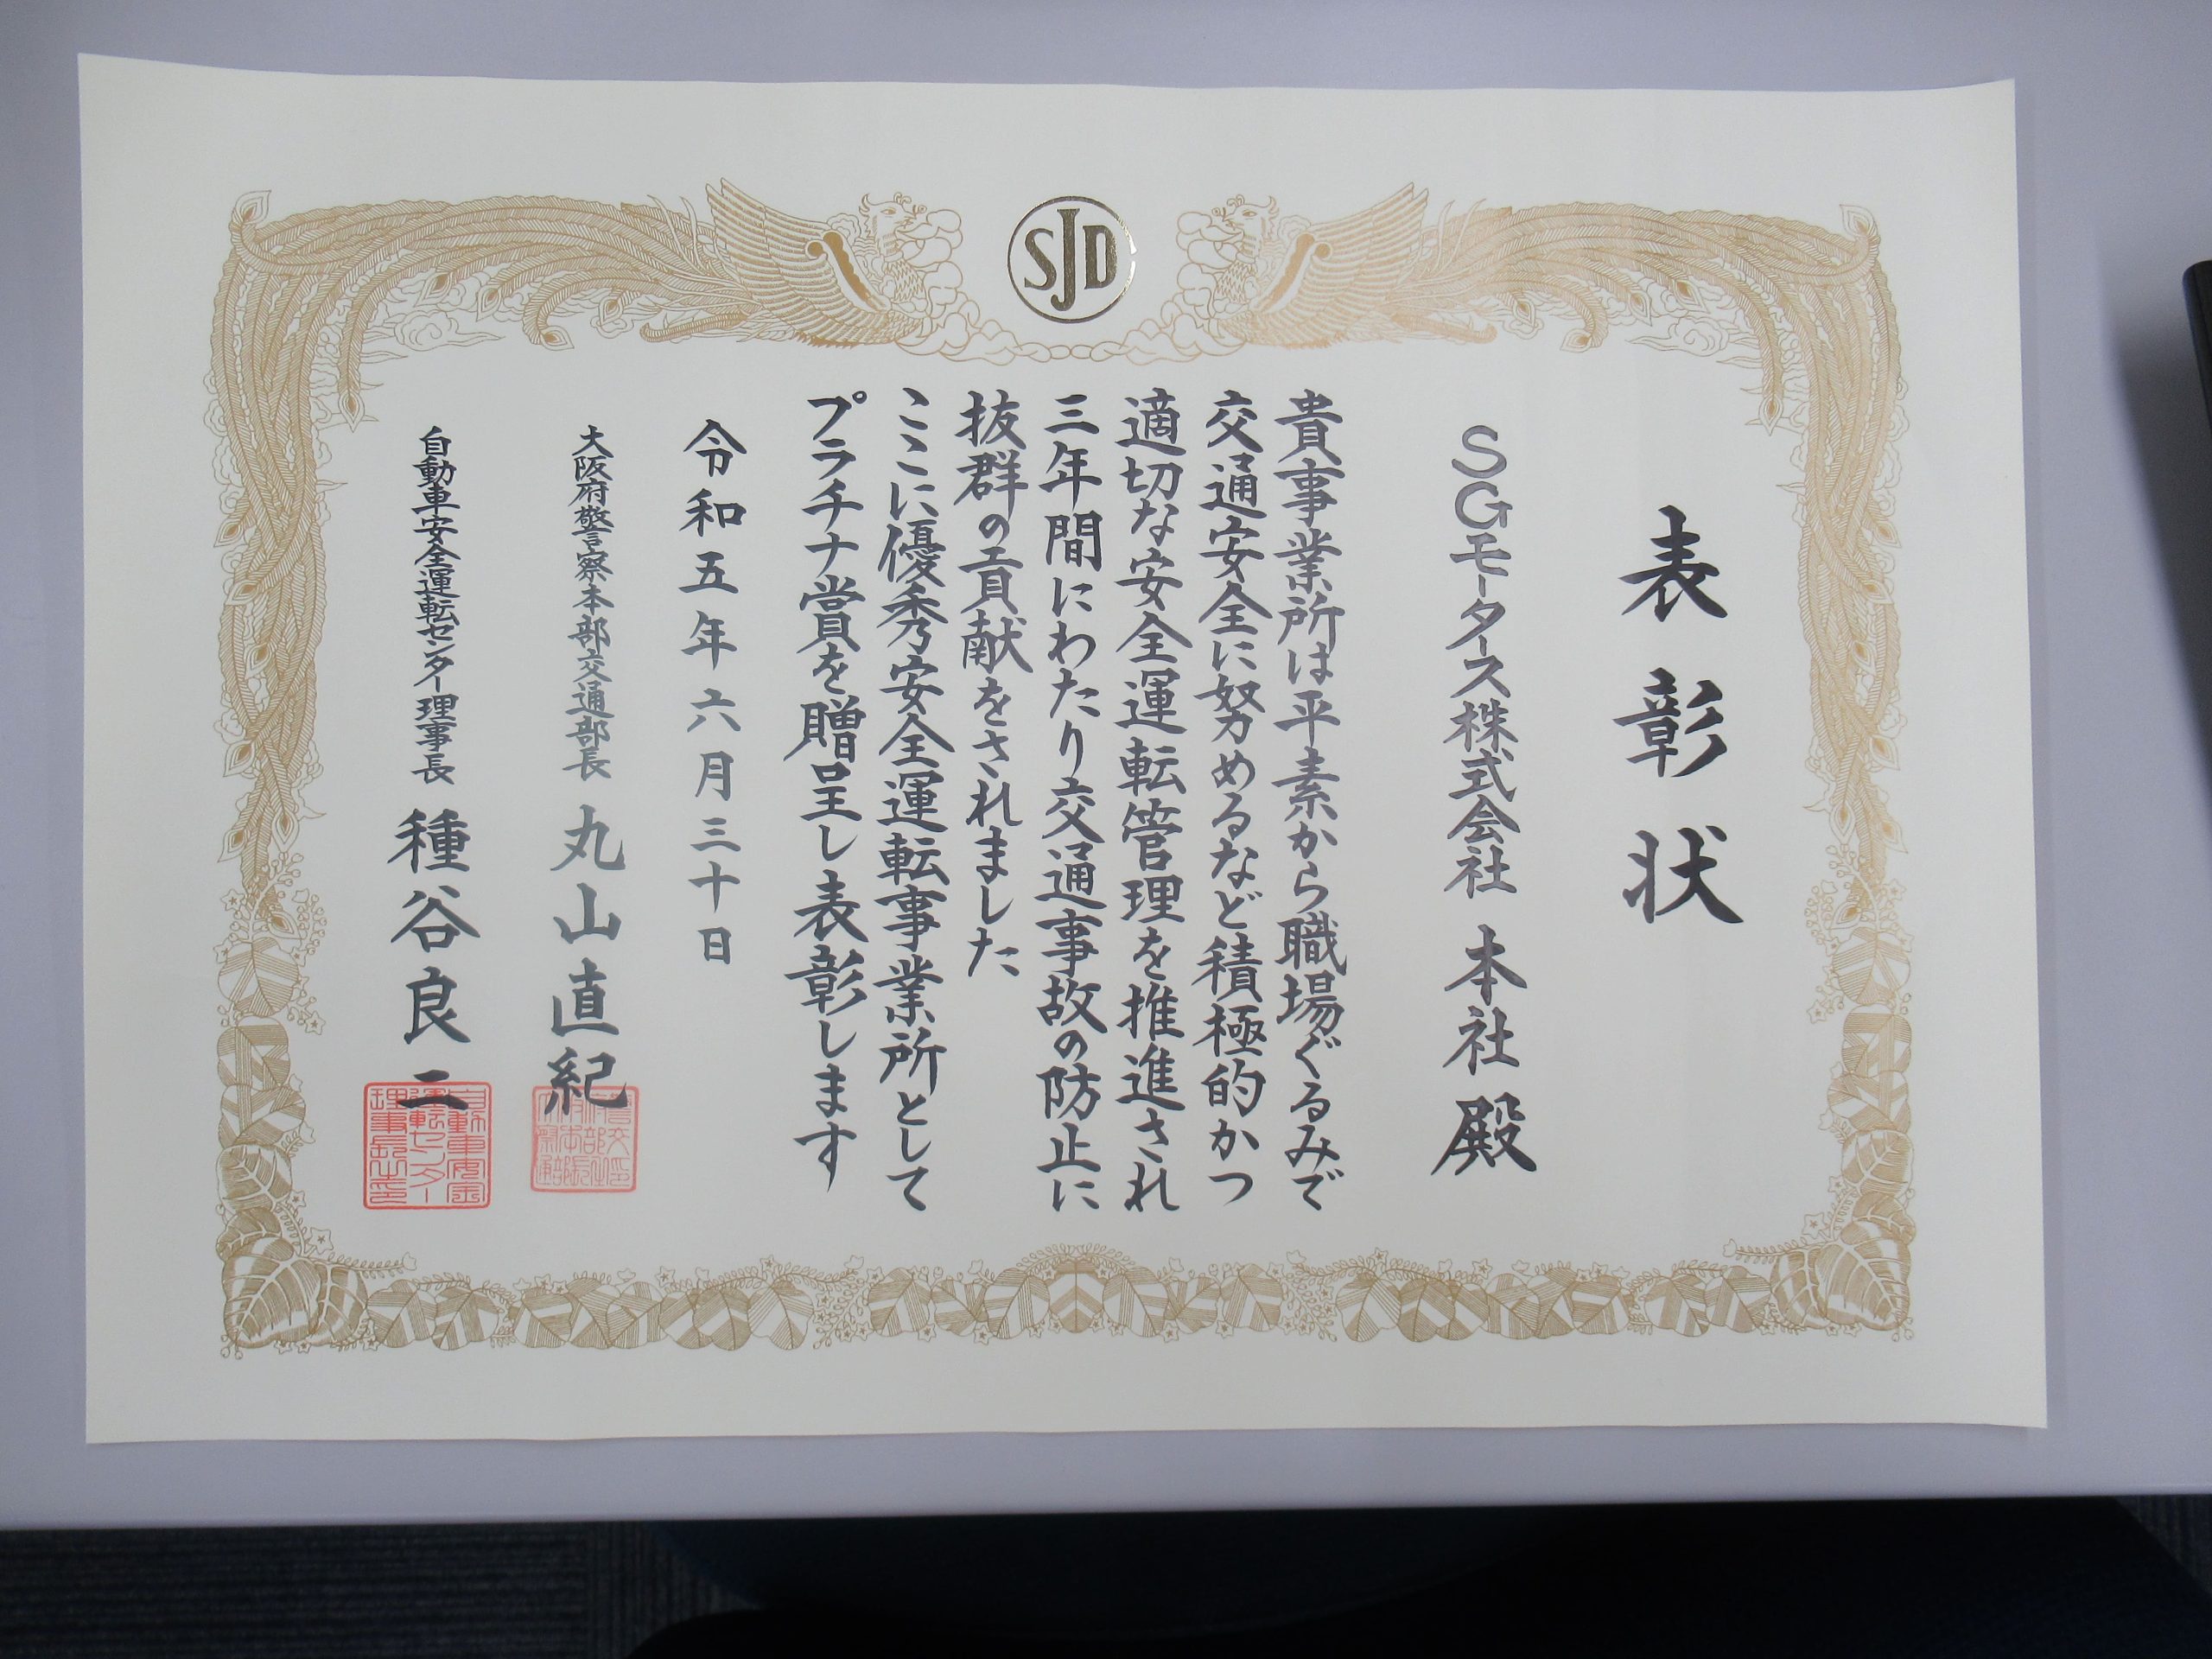 SJD
表彰状
SGモータース株式会社 本社 殿
貴事業所は平素から職場ぐるみで
交通安全に努めるなど積極的かつ
適切な安全運転管理を推進され
三年間にわたり交通事故の防止に
抜群の貢献をされました
ここに優秀安全運転事業所として
プラチナ賞を贈呈し表彰します
令和五年六月三十日
大阪府警察本部交通部長 丸山直紀
自動車安全運転センター理事長 種谷良二
自動車安全
運転センター
理事長之印